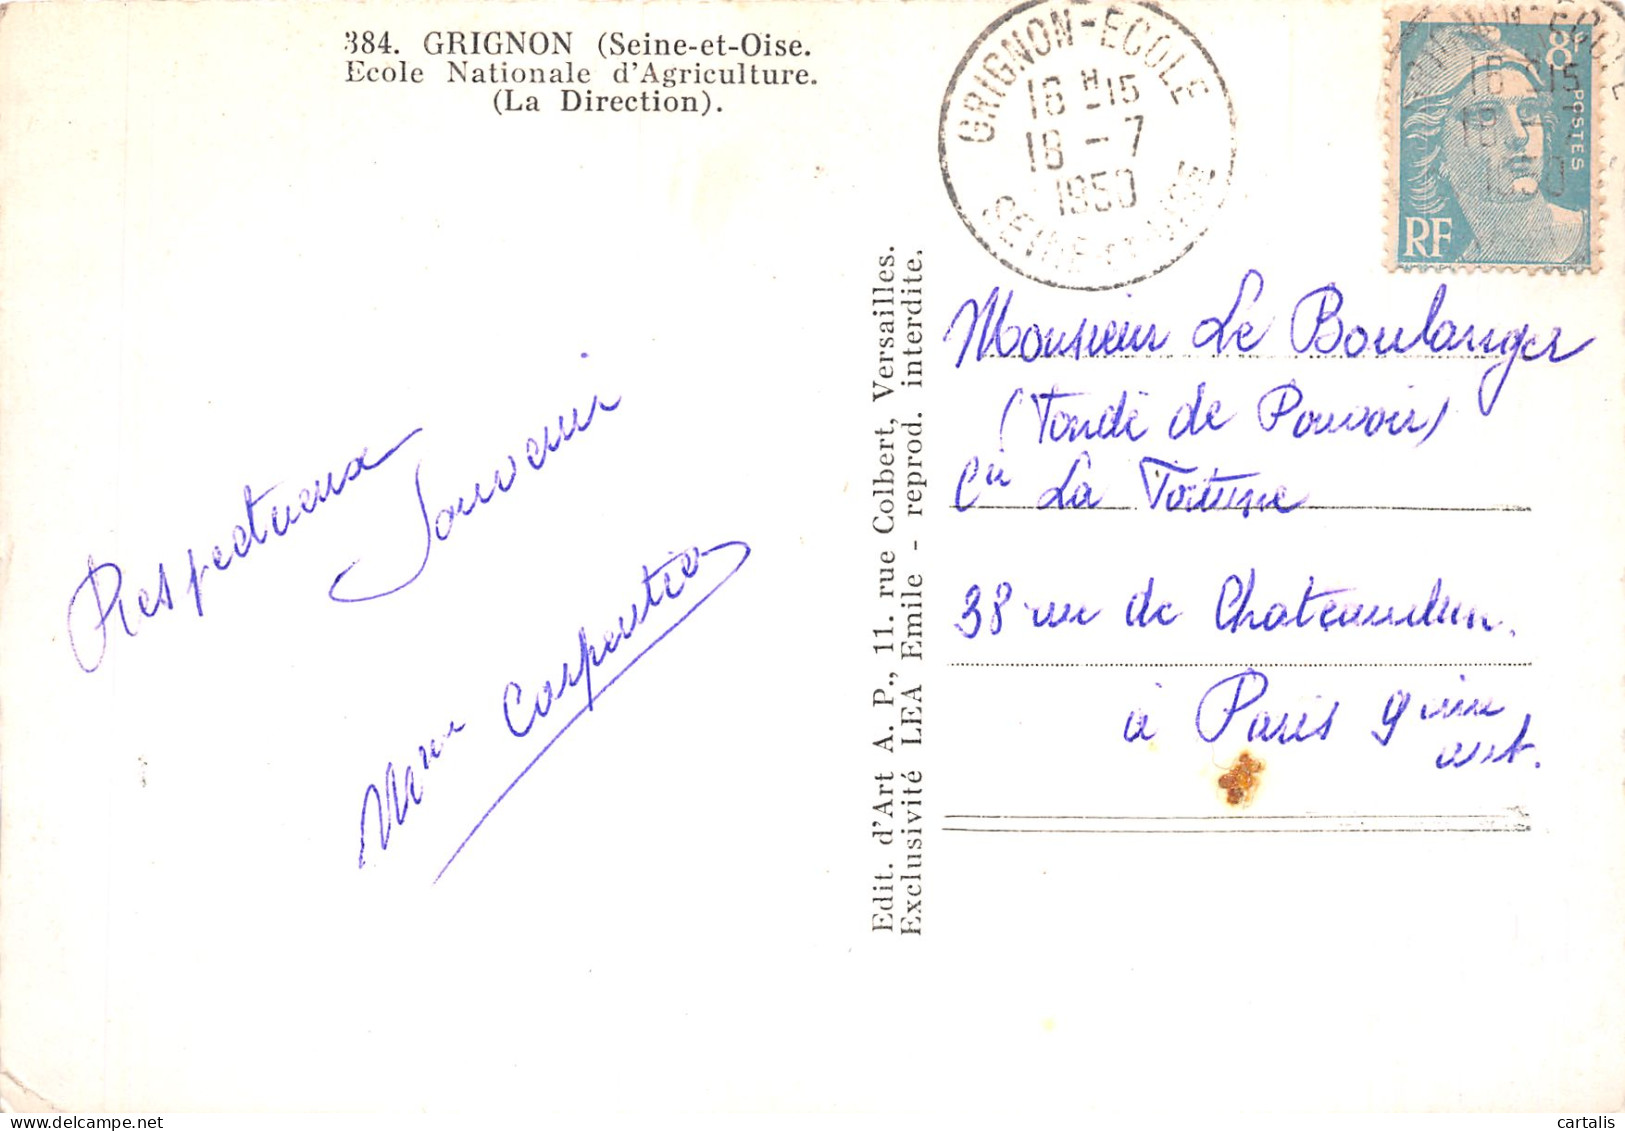 384. GRIGNON (Seine-et-Oise.
Ecole Nationale d'Agriculture.
(La Direction).
GRIGNON-ECOLE
16 H 15
18 - 7
1950
SEINE-ET-OISE
8F
POSTES
RF
16 H 15
18 - 7
1950
Respectueux
Souvenir
Mme Carpentier
Edit. d'Art A. P., 11. rue Colbert, Versailles.
Exclusivité LEA Emile - reprod. interdite.
Monsieur Le Boulanger
(Fondé de Pouvoir)
Cie La Fortune
38 rue de Chateaudun.
à Paris 9ème
arrt.
cartalis
delcampe.net